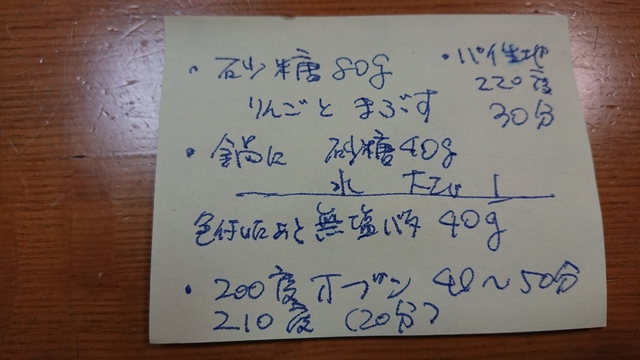 ・砂糖 80g
りんごと まぶす
・鍋に 砂糖40g
水 大さじ 1
色付いたあと 無塩バタ 40g
・200度オーブン 40〜50分
210度 (20分)
・パイ生地
220度
30分